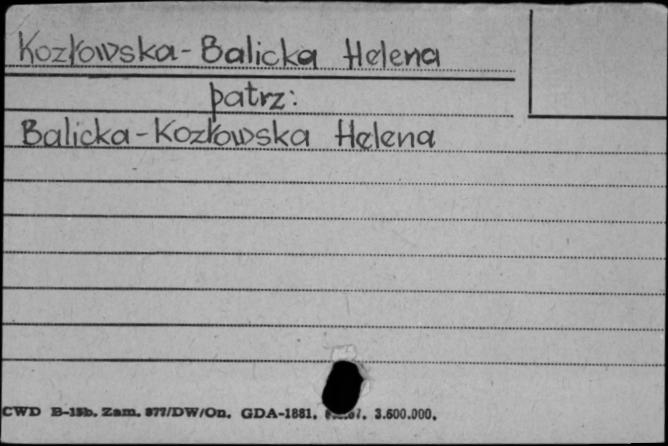 Kozłowska-Balicka Helena
patrz:
Balicka-Kozłowska Helena
CWD B-15b. Zam. 877/DW/On. GDA-1881. 3.600.000.